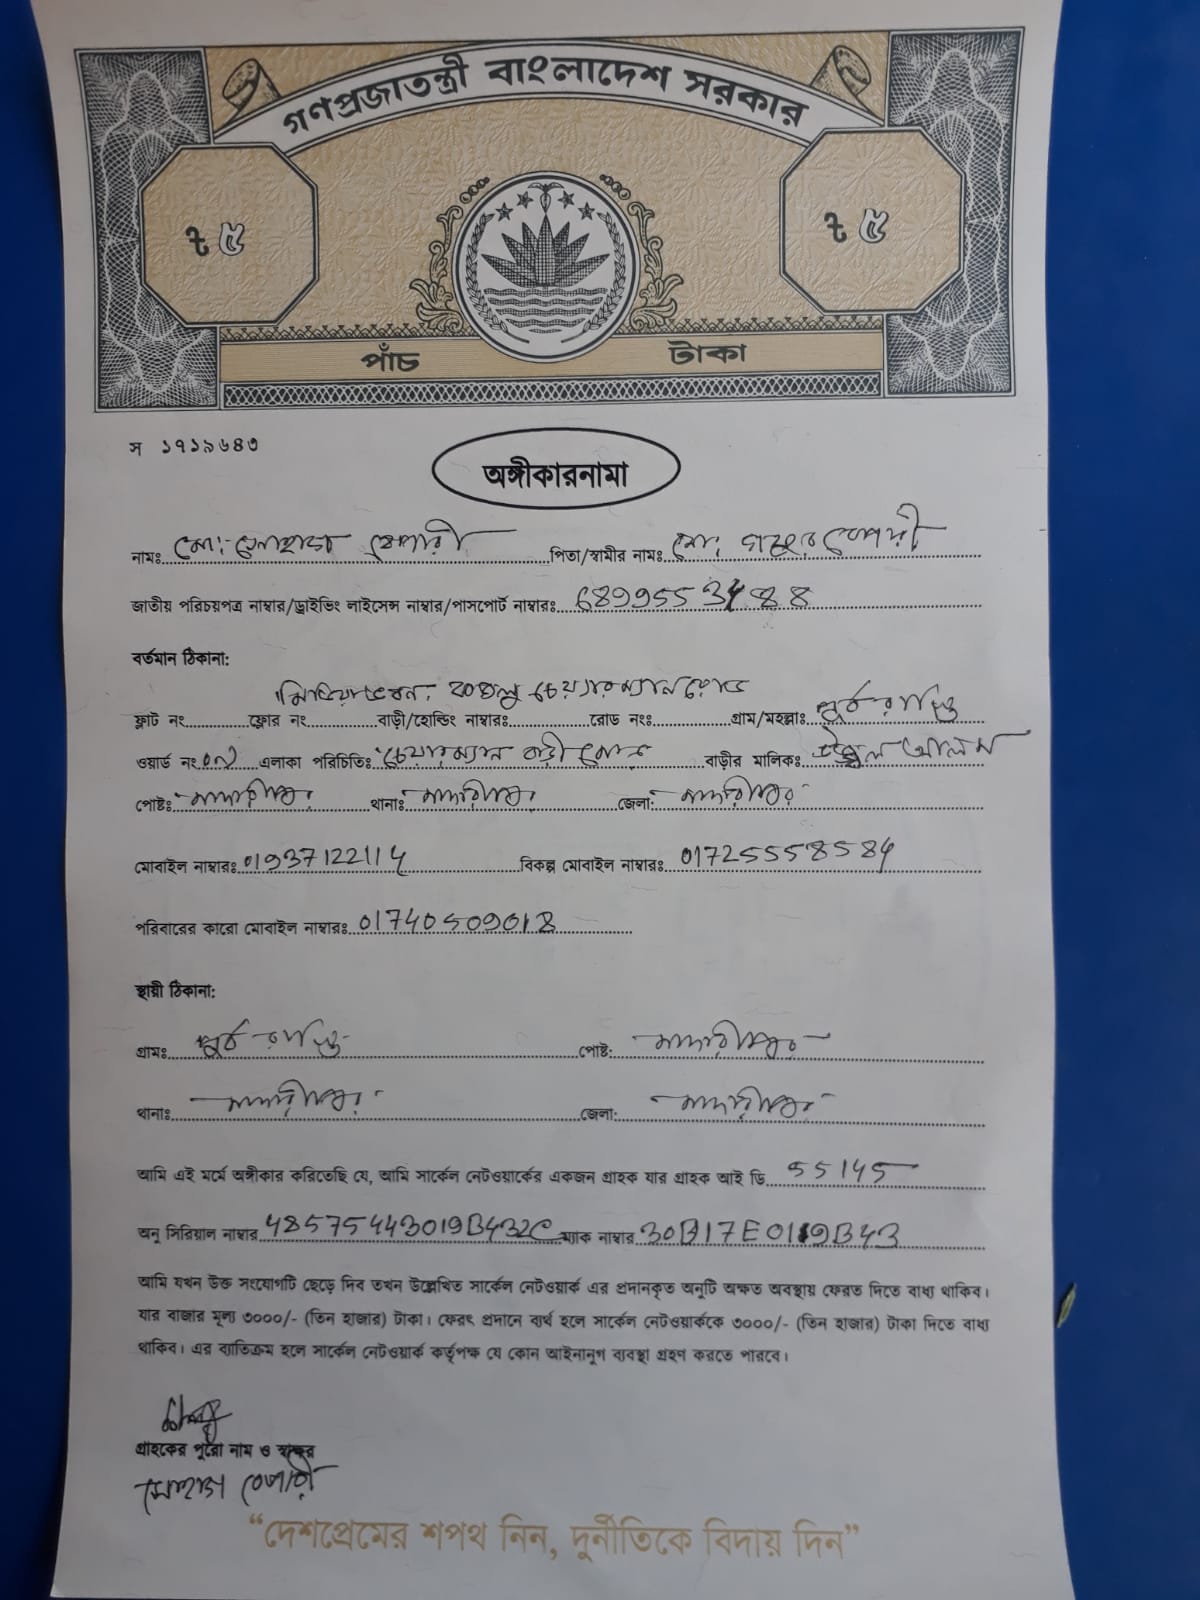 গণপ্রজাতন্ত্রী বাংলাদেশ সরকার
৳ ৫
৳ ৫
পাঁচ টাকা
স ১৭১৯৬৪৩
অঙ্গীকারনামা
নামঃ মোঃ বেপারী পিতা/স্বামীর নামঃ মোঃ
জাতীয় পরিচয়পত্র নাম্বার/ড্রাইভিং লাইসেন্স নাম্বার/পাসপোর্ট নাম্বারঃ
বর্তমান ঠিকানা:
চেয়ারম্যান রোড
ফ্লাট নং ফ্লোর নং বাড়ী/হোল্ডিং নাম্বারঃ রোড নং গ্রাম/মহল্লাঃ পূর্ব রাস্তি
ওয়ার্ড নং এলাকা পরিচিতিঃ চেয়ারম্যান বাড়ী বাড়ীর মালিকঃ আলম
পোষ্টঃ মাদারীপুর থানাঃ মাদারীপুর জেলা: মাদারীপুর
মোবাইল নাম্বারঃ 01937122114 বিকল্প মোবাইল নাম্বারঃ 01725558584
পরিবারের কারো মোবাইল নাম্বারঃ 01740509018
স্থায়ী ঠিকানা:
গ্রামঃ পূর্ব রাস্তি পোষ্ট: মাদারীপুর
থানাঃ মাদারীপুর জেলা: মাদারীপুর
আমি এই মর্মে অঙ্গীকার করিতেছি যে, আমি সার্কেল নেটওয়ার্কের একজন গ্রাহক যার গ্রাহক আই ডি 55145
অনু সিরিয়াল নাম্বার 48575443019B432C ম্যাক নাম্বার 30B17E019B43
আমি যখন উক্ত সংযোগটি ছেড়ে দিব তখন উল্লেখিত সার্কেল নেটওয়ার্ক এর প্রদানকৃত অনুটি অক্ষত অবস্থায় ফেরত দিতে বাধ্য থাকিব।
যার বাজার মূল্য ৩০০০/- (তিন হাজার) টাকা। ফেরৎ প্রদানে ব্যর্থ হলে সার্কেল নেটওয়ার্ককে ৩০০০/- (তিন হাজার) টাকা দিতে বাধ্য
থাকিব। এর ব্যাতিক্রম হলে সার্কেল নেটওয়ার্ক কর্তৃপক্ষ যে কোন আইনানুগ ব্যবস্থা গ্রহণ করতে পারবে।
গ্রাহকের পুরো নাম ও স্বাক্ষর
বেপারী
“দেশপ্রেমের শপথ নিন, দুর্নীতিকে বিদায় দিন”